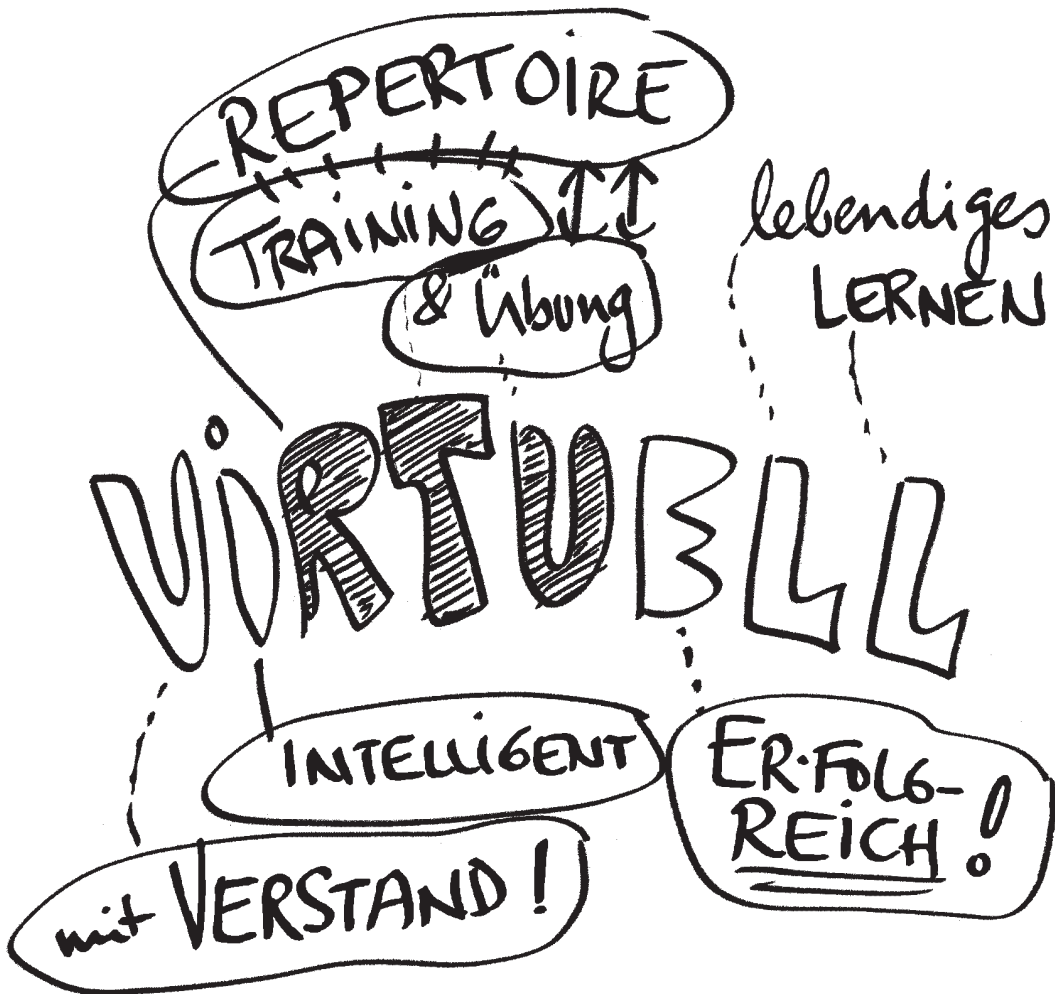 REPERTOIRE
TRAINING
& Übung
lebendiges
LERNEN
VIRTUELL
INTELLIGENT
ER·FOLG-
REICH!
mit VERSTAND!